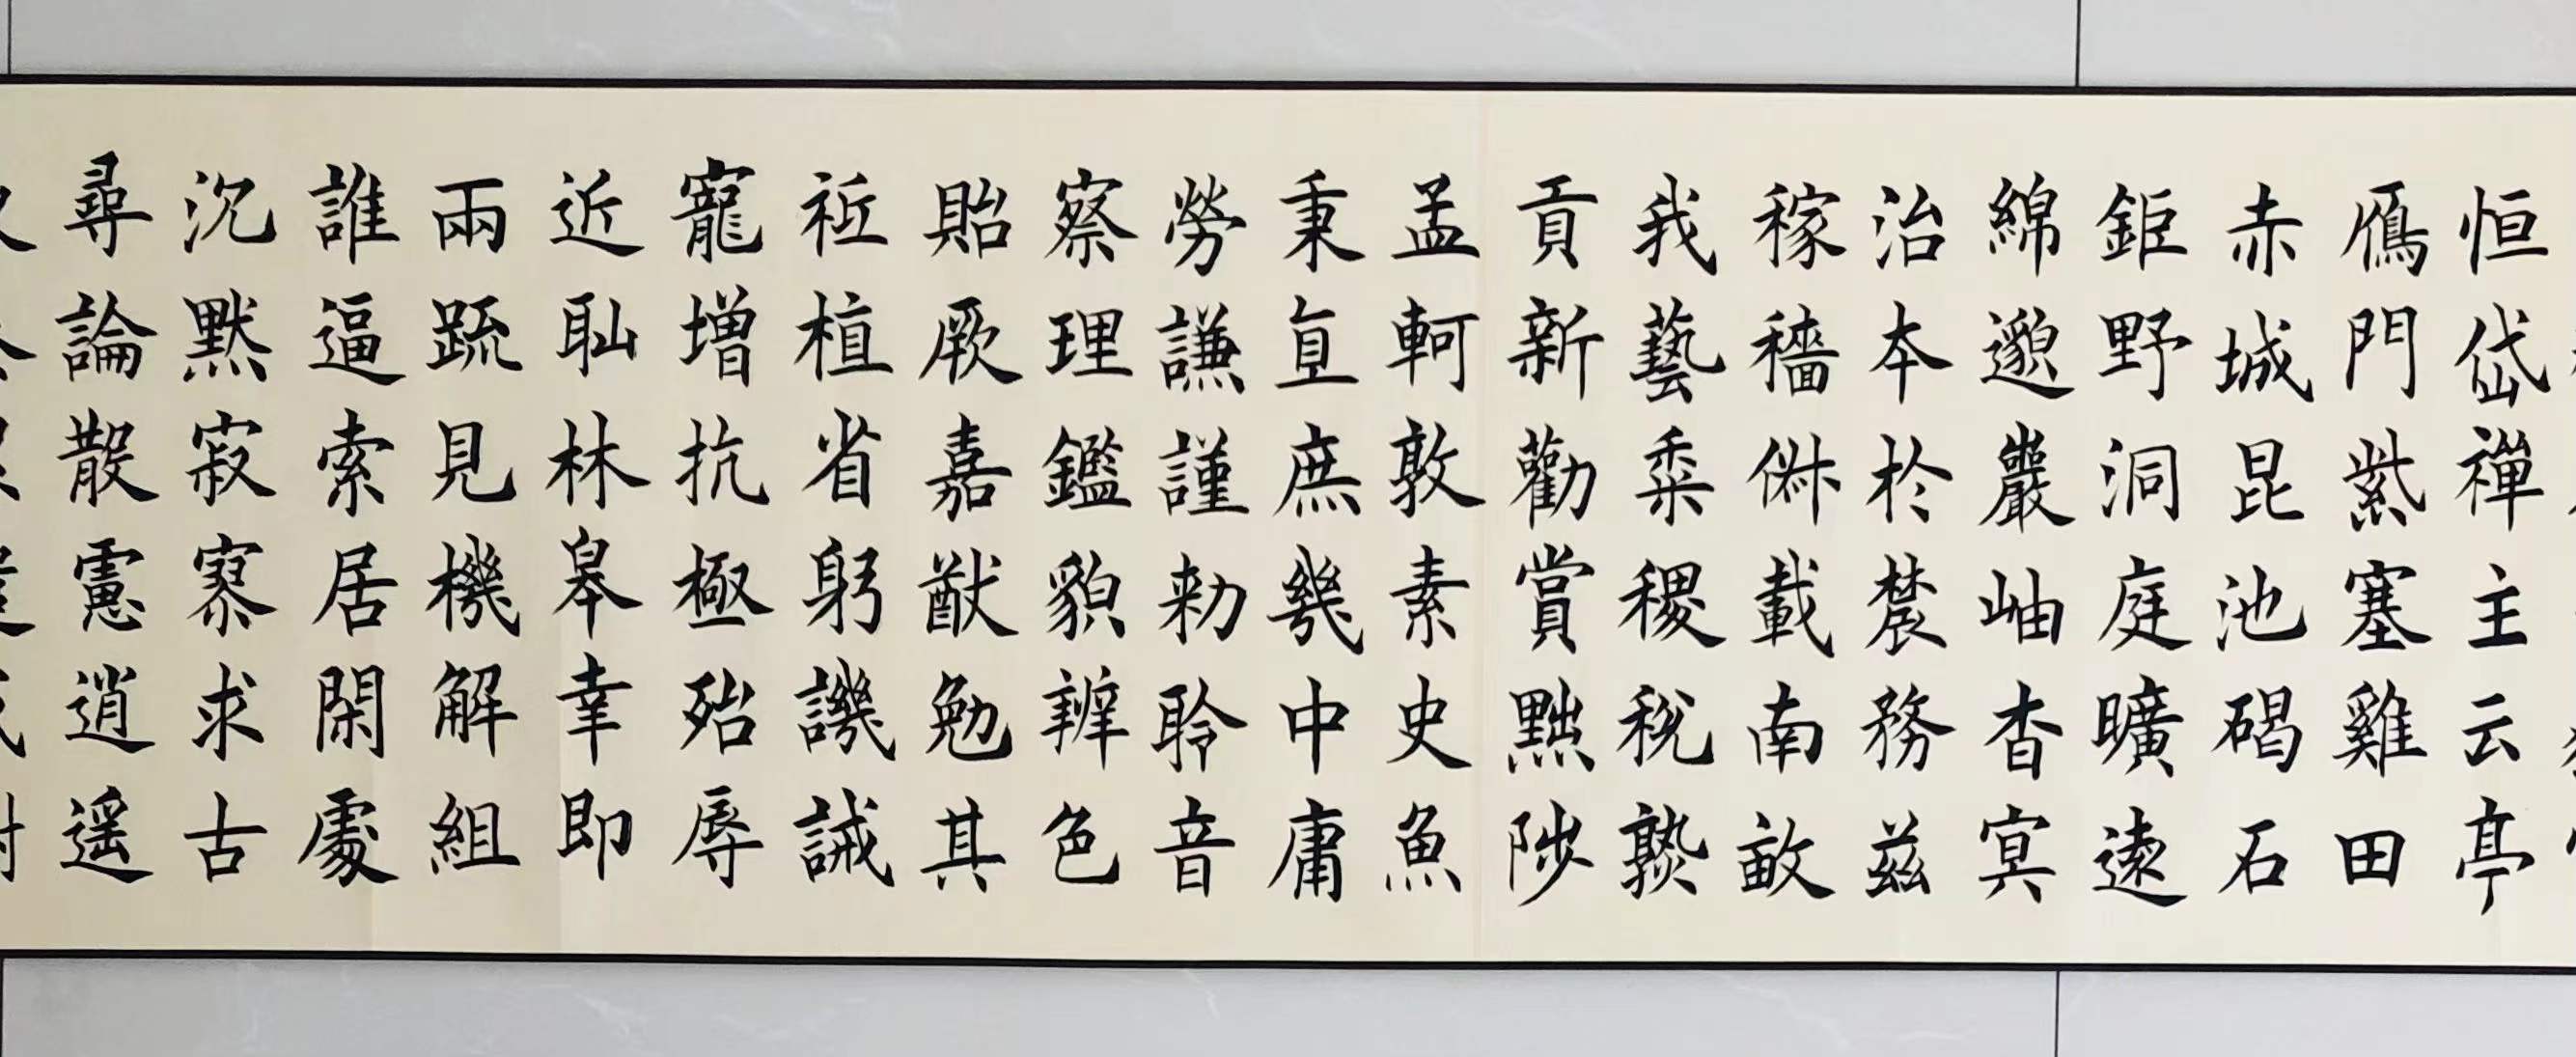 恒岱禪主云亭
鴈門紫塞雞田
赤城昆池碣石
鉅野洞庭曠遠
綿邈巖岫杳冥
治本於農務茲
稼穡俶載南畝
我藝黍稷稅熟
貢新勸賞黜陟
孟軻敦素史魚
秉直庶幾中庸
勞謙謹勑聆音
察理鑑貌辨色
貽厥嘉猷勉其
祗植省躬譏誡
寵增抗極殆辱
近恥林皋幸即
兩疏見機解組
誰逼索居閑處
沉默寂寥求古
尋論散慮逍遙